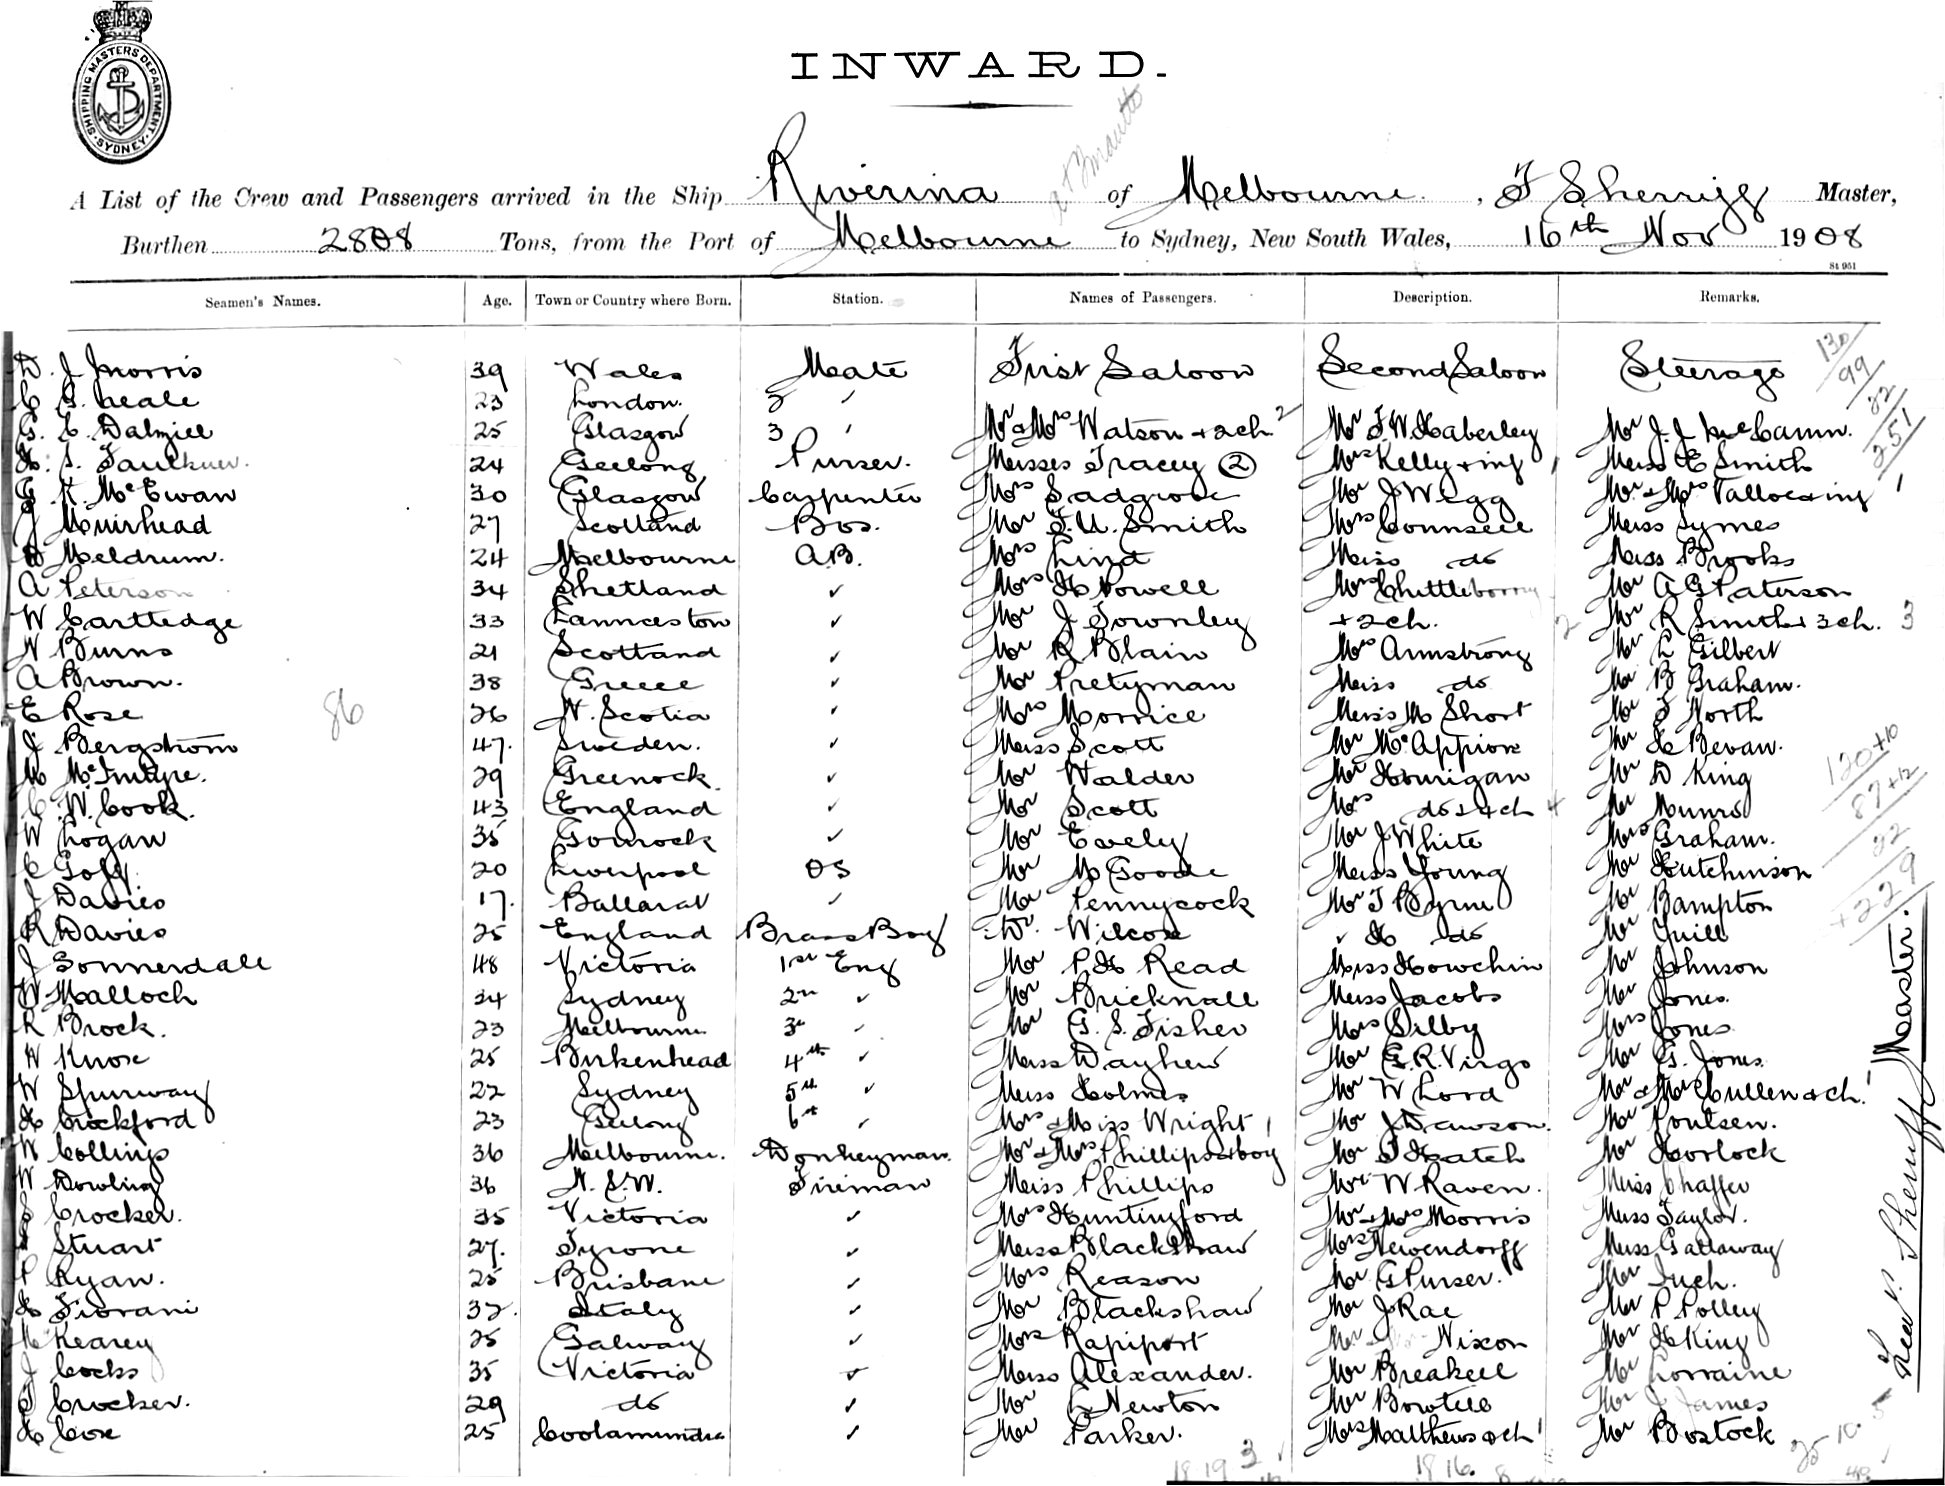 SHIPPING MASTERS DEPARTMENT. SYDNEY
INWARD.
A List of the Crew and Passengers arrived in the Ship Riverina of Melbourne, Sherriff Master,
Burthen 2808 Tons, from the Port of Melbourne to Sydney, New South Wales, 16th Nov 1908
St 951
Seamen's Names. Age. Town or Country where Born. Station. Names of Passengers. Description. Remarks.
D. J Morris 39 Wales Mate First Saloon Second Saloon Steerage 130
C G. Neale 23 London. 2 " 99
G. C. Dalziell 25 Glasgow 3 " Mr & Mrs Watson + 2 ch 2 Mr F. W. Haberley Mr J. J McCann. 22
H. S. Faulkner. 24 Geelong Purser. Misses Tracey (2) Mrs Kelly + inf 1 Miss E Smith 251
G K. McEwan 30 Glasgow Carpenter Mrs Sadgrove Mr J Wegg Mr & Mrs + inf 1
J Muirhead 27 Scotland Bos. Mr F. U. Smith Mrs Counsell Miss Symes
Meldrum. 24 Melbourne A.B. Mrs Lind Miss do Miss Brooks
A Peterson 34 Shetland ✓ Mrs H Powell Mrs Mr A G Paterson
W Cartledge 33 Launceston ✓ Mr J Townley + 2 ch. 2 Mr R Smith + 3 ch. 3
N Burns 21 Scotland ✓ Mr R Blain Mrs Armstrong Mr L Gilbert
A Brown. 38 Greece ✓ Mr Pretyman Miss do Mr B Graham.
E Rose 86 26 N. Scotia ✓ Mrs Morrice Miss M Short Mr North
J Bergstrom 47. Sweden. ✓ Miss Scott Mr Mr H Bevan. 120+10
M McIntyre. 29 Greenock ✓ Mr Walder Mr Hourigan Mr D King 87+12
C. W. Cook. 43 England ✓ Mr Scott Mrs do & 4 ch 4 Mr Munro
W Logan 35 Gourock ✓ Mr Evely Mr J White Mrs Graham. 22
C Goff 20 Liverpool OS Mr M Goode Miss Young Mr Hutchinson +229
J Davies 17. Ballarat ✓ Mr Pennycock Mr T Byrne Mr Bampton
R Davies 25 England Brass Boy Dr. Wilcox " H do Mr Quill
J Sonnerdale 48 Victoria 1st Eng Mr P. H Read Miss Howchin Mr Johnson
W Malloch 34 Sydney 2nd ✓ Mr Bricknall Miss Jacobs Mr Jones
R Brock. 23 Melbourne 3rd ✓ Mr G. S. Fisher Mrs Silby Mrs Jones
W Knox 25 Birkenhead 4th ✓ Miss Dayhew Mr G. R. Virgo Mr G. Jones.
W Spurway 22 Sydney 5th ✓ Miss Holmes Mr W Lord Mr & Mrs Cullen & ch. 1
H Crockford 23 Geelong 6th ✓ Mrs & Miss Wright 1 Mr J Dawson. Mr Poulsen.
W Collings 36 Melbourne. Donkeyman. Mr & Mrs Phillips & boy Mr Heatch Mr Horlock
W Dowling 36 N. S. W. Fireman Miss Phillips Mr W Raven. Miss Chaffer
Crocker. 35 Victoria ✓ Mrs Huntingford Mr & Mrs Morris Miss Taylor.
Stuart 27. Tyrone ✓ Miss Blackshaw Mrs Newendorff Miss Gallaway
P Ryan. 25 Brisbane ✓ Mrs Reason Mr G Purser. Mr Tuch.
H Fiorani 32. Italy ✓ Mr Blackshaw Mr J Rae Mr P Polley
Kearey 25 Galway ✓ Mrs Rapiport Nixon Mr H King
J Cocks 35 Victoria ✓ Miss Alexander. Mr Breakell Mr Lorraine
Crocker. 29 do ✓ Mr L Newton Mr Bowtell Mr J James
H Cox 25 Cootamundra ✓ Mr Parker. Mrs Matthews & ch 1 Mr Bostock
18 19 3 18 16. 8 25 10. 5
Sherriff Master.